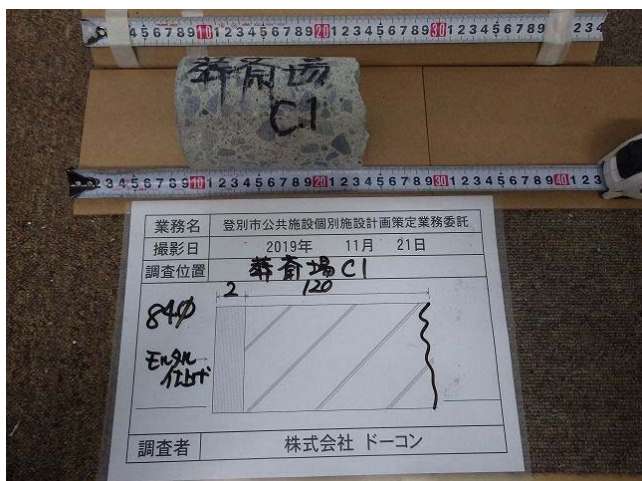 4 5 6 7 8 9 10 1 2 3 4 5 6 7 8 9 20 1 2 3 4 5 6 7 8 9 30 1 2 3 4 5 6 7 8 9
葬斎場
C1
1 2 3 4 5 6 7 8 9 10 1 2 3 4 5 6 7 8 9 20 1 2 3 4 5 6 7 8 9 30 1 2 3 4 5 6 7 8 9 40 1 2 3
業務名 登別市公共施設個別施設計画策定業務委託
撮影日 2019年 11月 21日
調査位置 葬斎場 C1
2 120
84φ
モルタル
仕上げ
調査者 株式会社 ドーコン